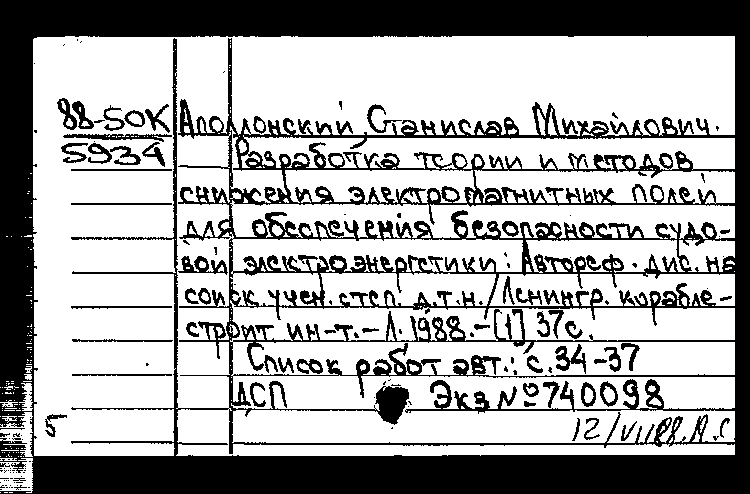 88-50К Аполлонский, Станислав Михайлович.
5934 Разработка теории и методов
снижения электромагнитных полей
для обеспечения безопасности судо-
вой электроэнергетики: Автореф. дис. на
соиск. учен. степ. д.т.н./Ленингр. корабле-
строит. ин-т.-Л. 1988.-[1] 37с.
Список работ авт.: с. 34-37
ДСП Экз № 740098
5 12/VII88. А.С